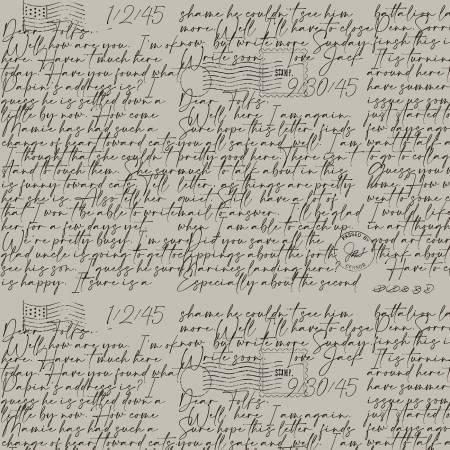 1/2/45
Dear Folks,
Well how are you. I'm ok
here. Haven't much here
today. Have you found what
Dabin's address is?
guess he is settled down a
little by now. How come
Mamie has had such a
change of heart toward cats
I though that she couldn't
stand to touch them. She sure
is funny toward cats. Tell
her she is. Also tell her
that I won't be able to write
her for a few days yet.
We're pretty busy. I'm sure
glad uncle is going to get to
see his son. I guess he sure
is happy. It sure is a
shame he couldn't see him
more. Well I'll have to close
now, but write more Sunday.
Write soon Love Jack
STAMP.
9/30/45
Dear Folks,
Well, here I am again.
Sure hope this letter finds
you all safe and well. I am
pretty good here. There isn't
much to talk about in this
letter, as things are pretty
quiet. Still have a lot of
mail to answer. I'll be glad
when I am able to catch up.
Did you save the
clippings about the forth
Marines landing here?
Especially about the second
PASSED BY
CENSOR
battalion la
Denn. Sorry
finish this i
It is turnin
around here t
have summer
issue us som
just started t
few days ago
want to go to colleg
Guess
home. How
went to some
would like
in art though
good art
think about
Have to c
1/2/45
Dear Folks,
Well how are you. I'm ok
here. Haven't much here
today. Have you found what
Dabin's address is?
guess he is settled down a
little by now. How come
Mamie has had such a
change of heart toward cats
shame he couldn't see him
more. Well I'll have to close
now, but write more Sunday.
Write soon Love Jack
STAMP.
9/30/45
Dear Folks,
Well, here I am again.
Sure hope this letter finds
you all safe and well. I am
battalion la
Denn. Sorry
finish this i
It is turnin
around here t
have summer
issue us som
just started t
few days ago
want to go to colleg